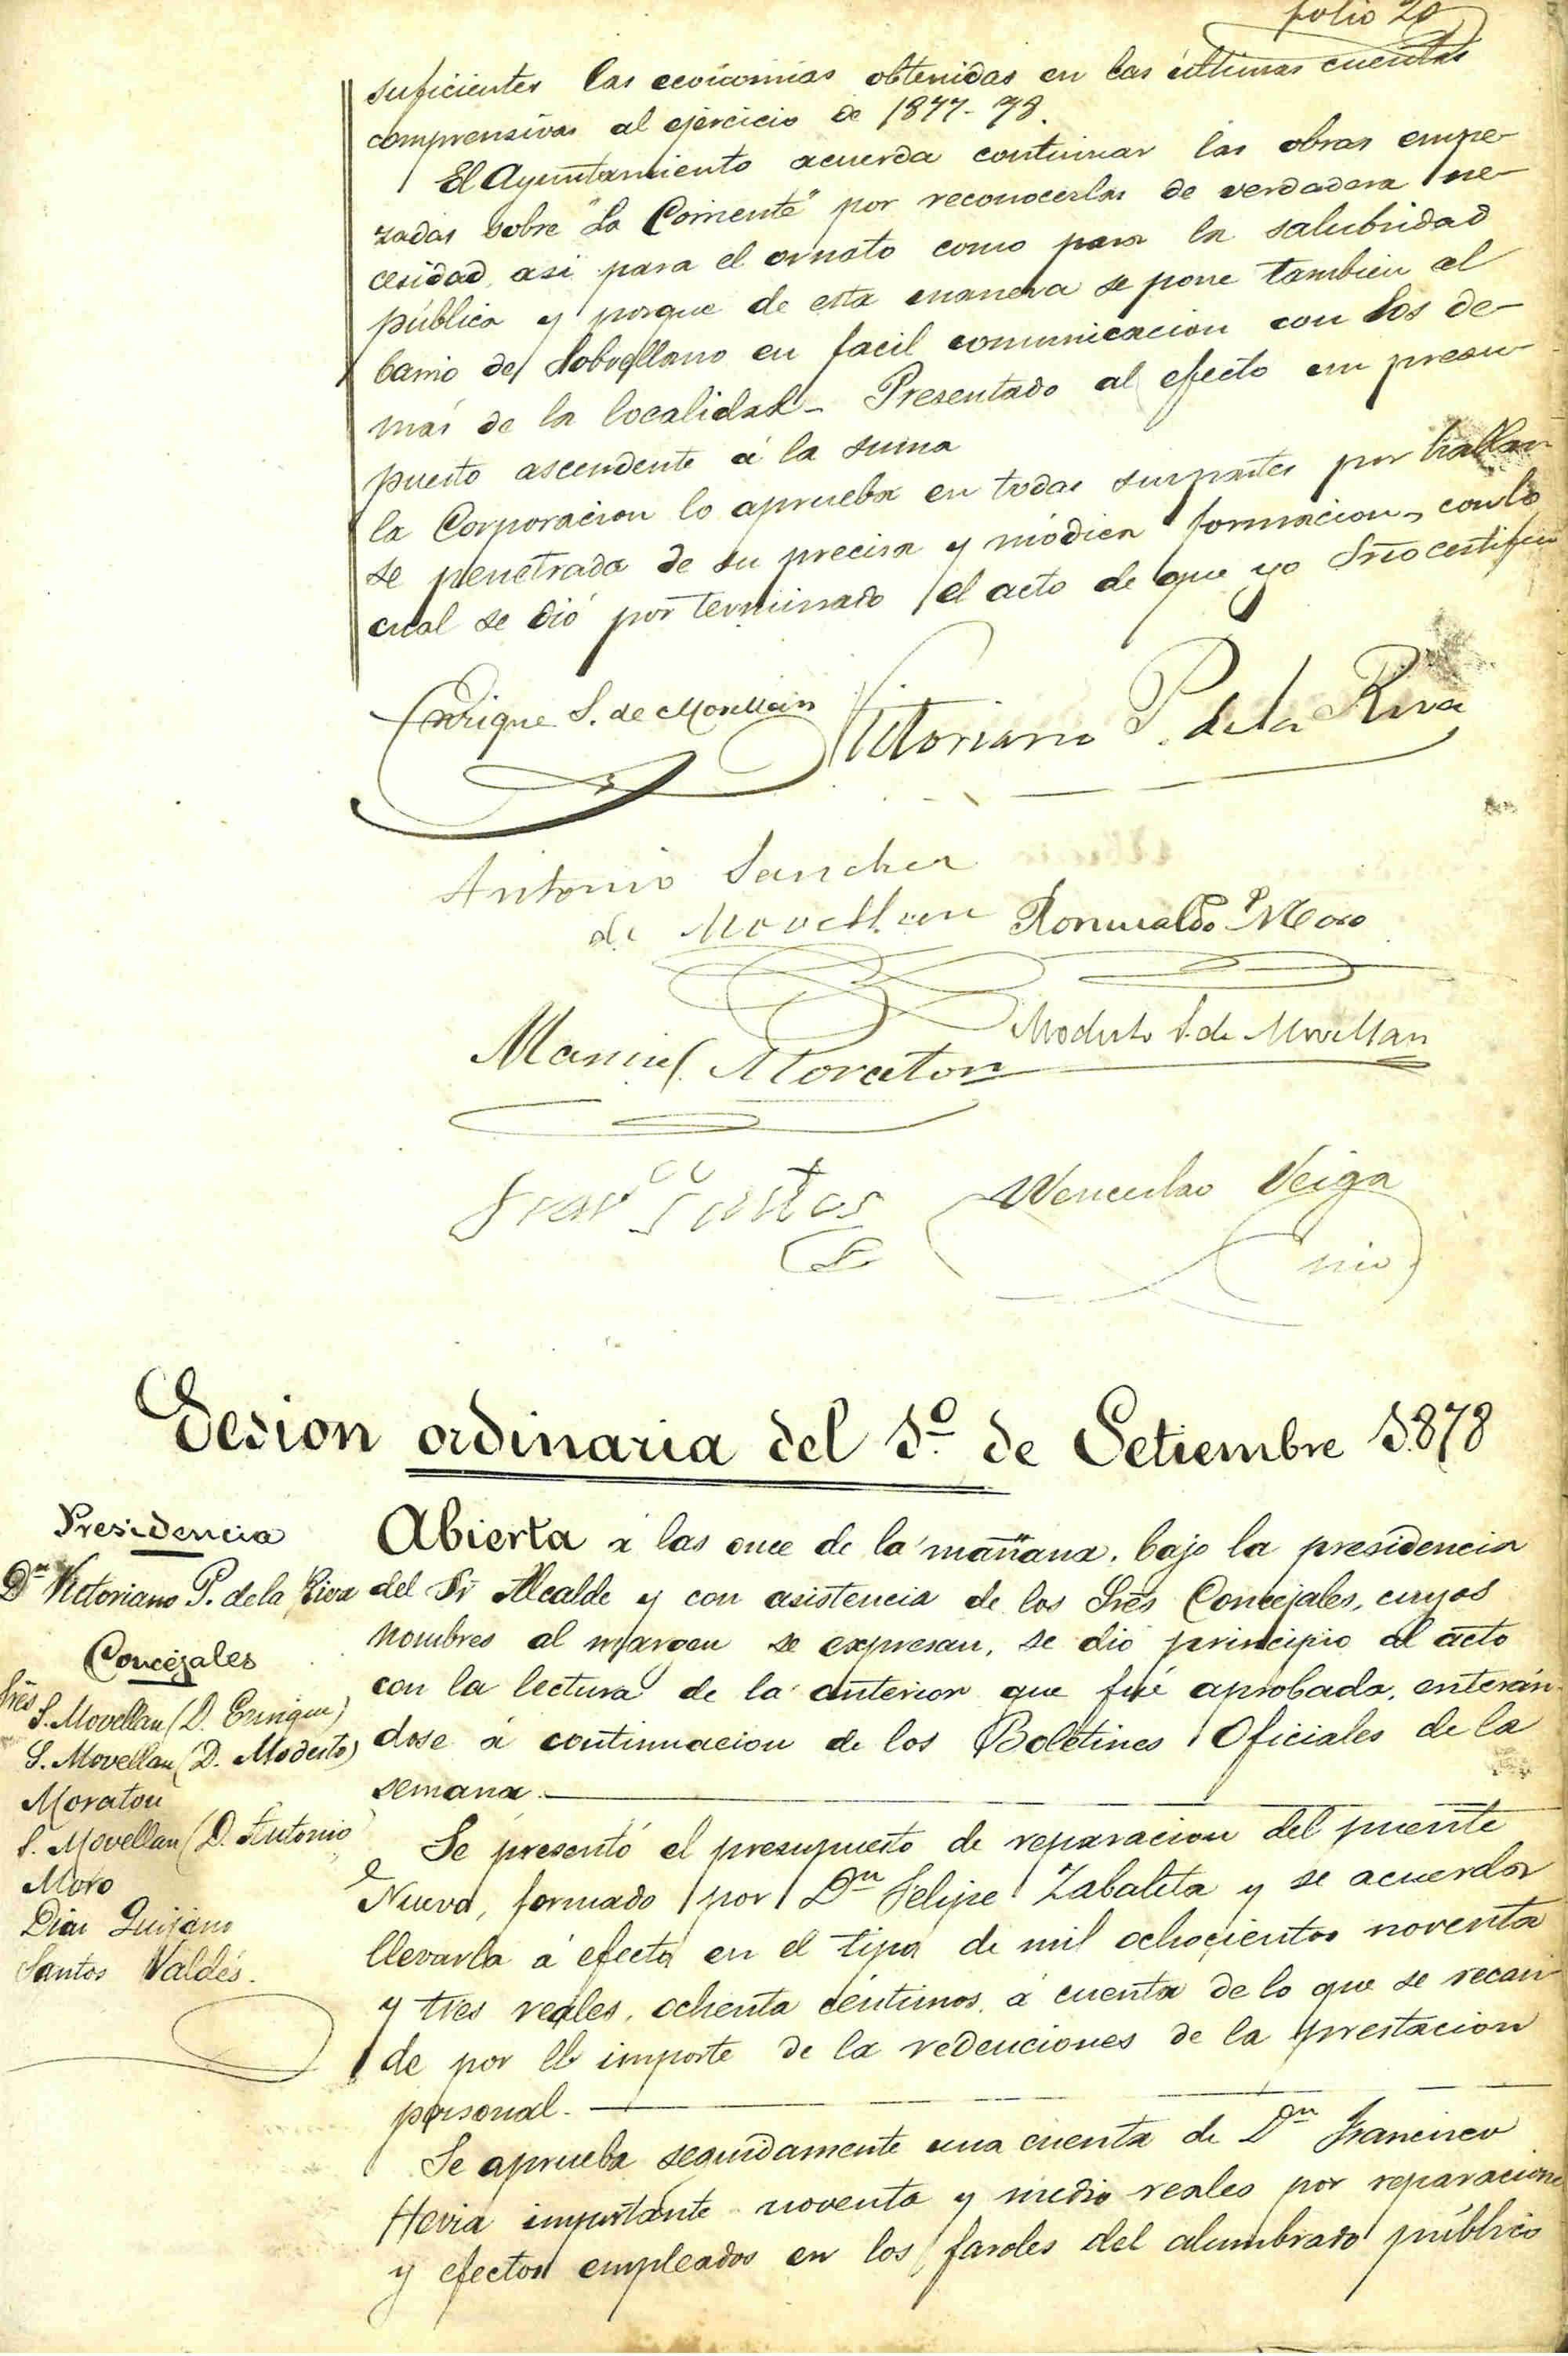 folio 20
suficientes las economias obtenidas en las últimas cuentas
comprensivas al ejercicio de 1877-78.
El Ayuntamiento acuerda continuar las obras empe-
zadas sobre "La Corriente" por reconocerlas de verdadera ne-
cesidad, asi para el ornato como para la salubridad
pública y porque de esta manera se pone tambien al
barrio de Sobrellano en facil comunicacion con los de-
más de la localidad - Presentado al efecto un presu-
puesto ascendente á la suma
la Corporacion lo aprueba en todas sus partes por hallar-
se penetrada de su precisa y módica formacion, con lo
cual se dió por terminado el acto de que yo Srio certifico
Enrique S. de Movellan
Vitoriano P. de la Riva
Antonio Sanchez
de Movellan
Romualdo P Moro
Modesto S. de Movellan
Manuel Moraton
Franco Santos
Wenceslao Veiga
srio
Sesion ordinaria del 1º de Setiembre 1878
Presidencia
Dn Victoriano P. de la Riva
Concejales
Sres
S. Movellan (D. Enrique)
S. Movellan (D. Modesto)
Moraton
S. Movellan (D. Antonio
Moro
Diaz Quijano
Santos Valdés.
Abierta á las once de la mañana, bajo la presidencia
del Sr Alcalde y con asistencia de los Sres Concejales, cuyos
nombres al margen se expresan, se dió principio al acto
con la lectura de la anterior que fué aprobada, enterán-
dose á continuacion de los Boletines Oficiales de la
semana.
Se presentó el presupuesto de reparacion del puente
Nuevo, formado por Dn Felipe Zabaleta y se acuerda
llevarla á efecto en el tipo de mil ochocientos noventa
y tres reales, ochenta céntimos, á cuenta de lo que se recau-
de por el importe de la redenciones de la prestacion
personal.
Se aprueba seguidamente una cuenta de Dn Francisco
Hevia importante noventa y medio reales por reparaciones
y efectos empleados en los faroles del alumbrado público